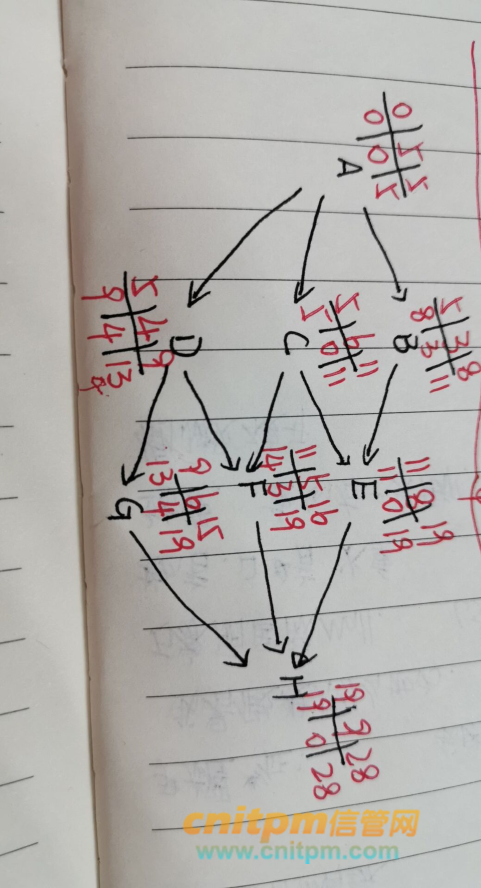 0 5 5
0 0 5
A
5 3 8
8 3 11
B
5 6 11
5 0 11
C
D
5 4 9
9 4 13
11 8 19
11 0 19
E
11 5 16
14 3 19
F
9 6 15
13 4 19
G
19 9 28
19 0 28
H
cnitpm信管网
www.cnitpm.com